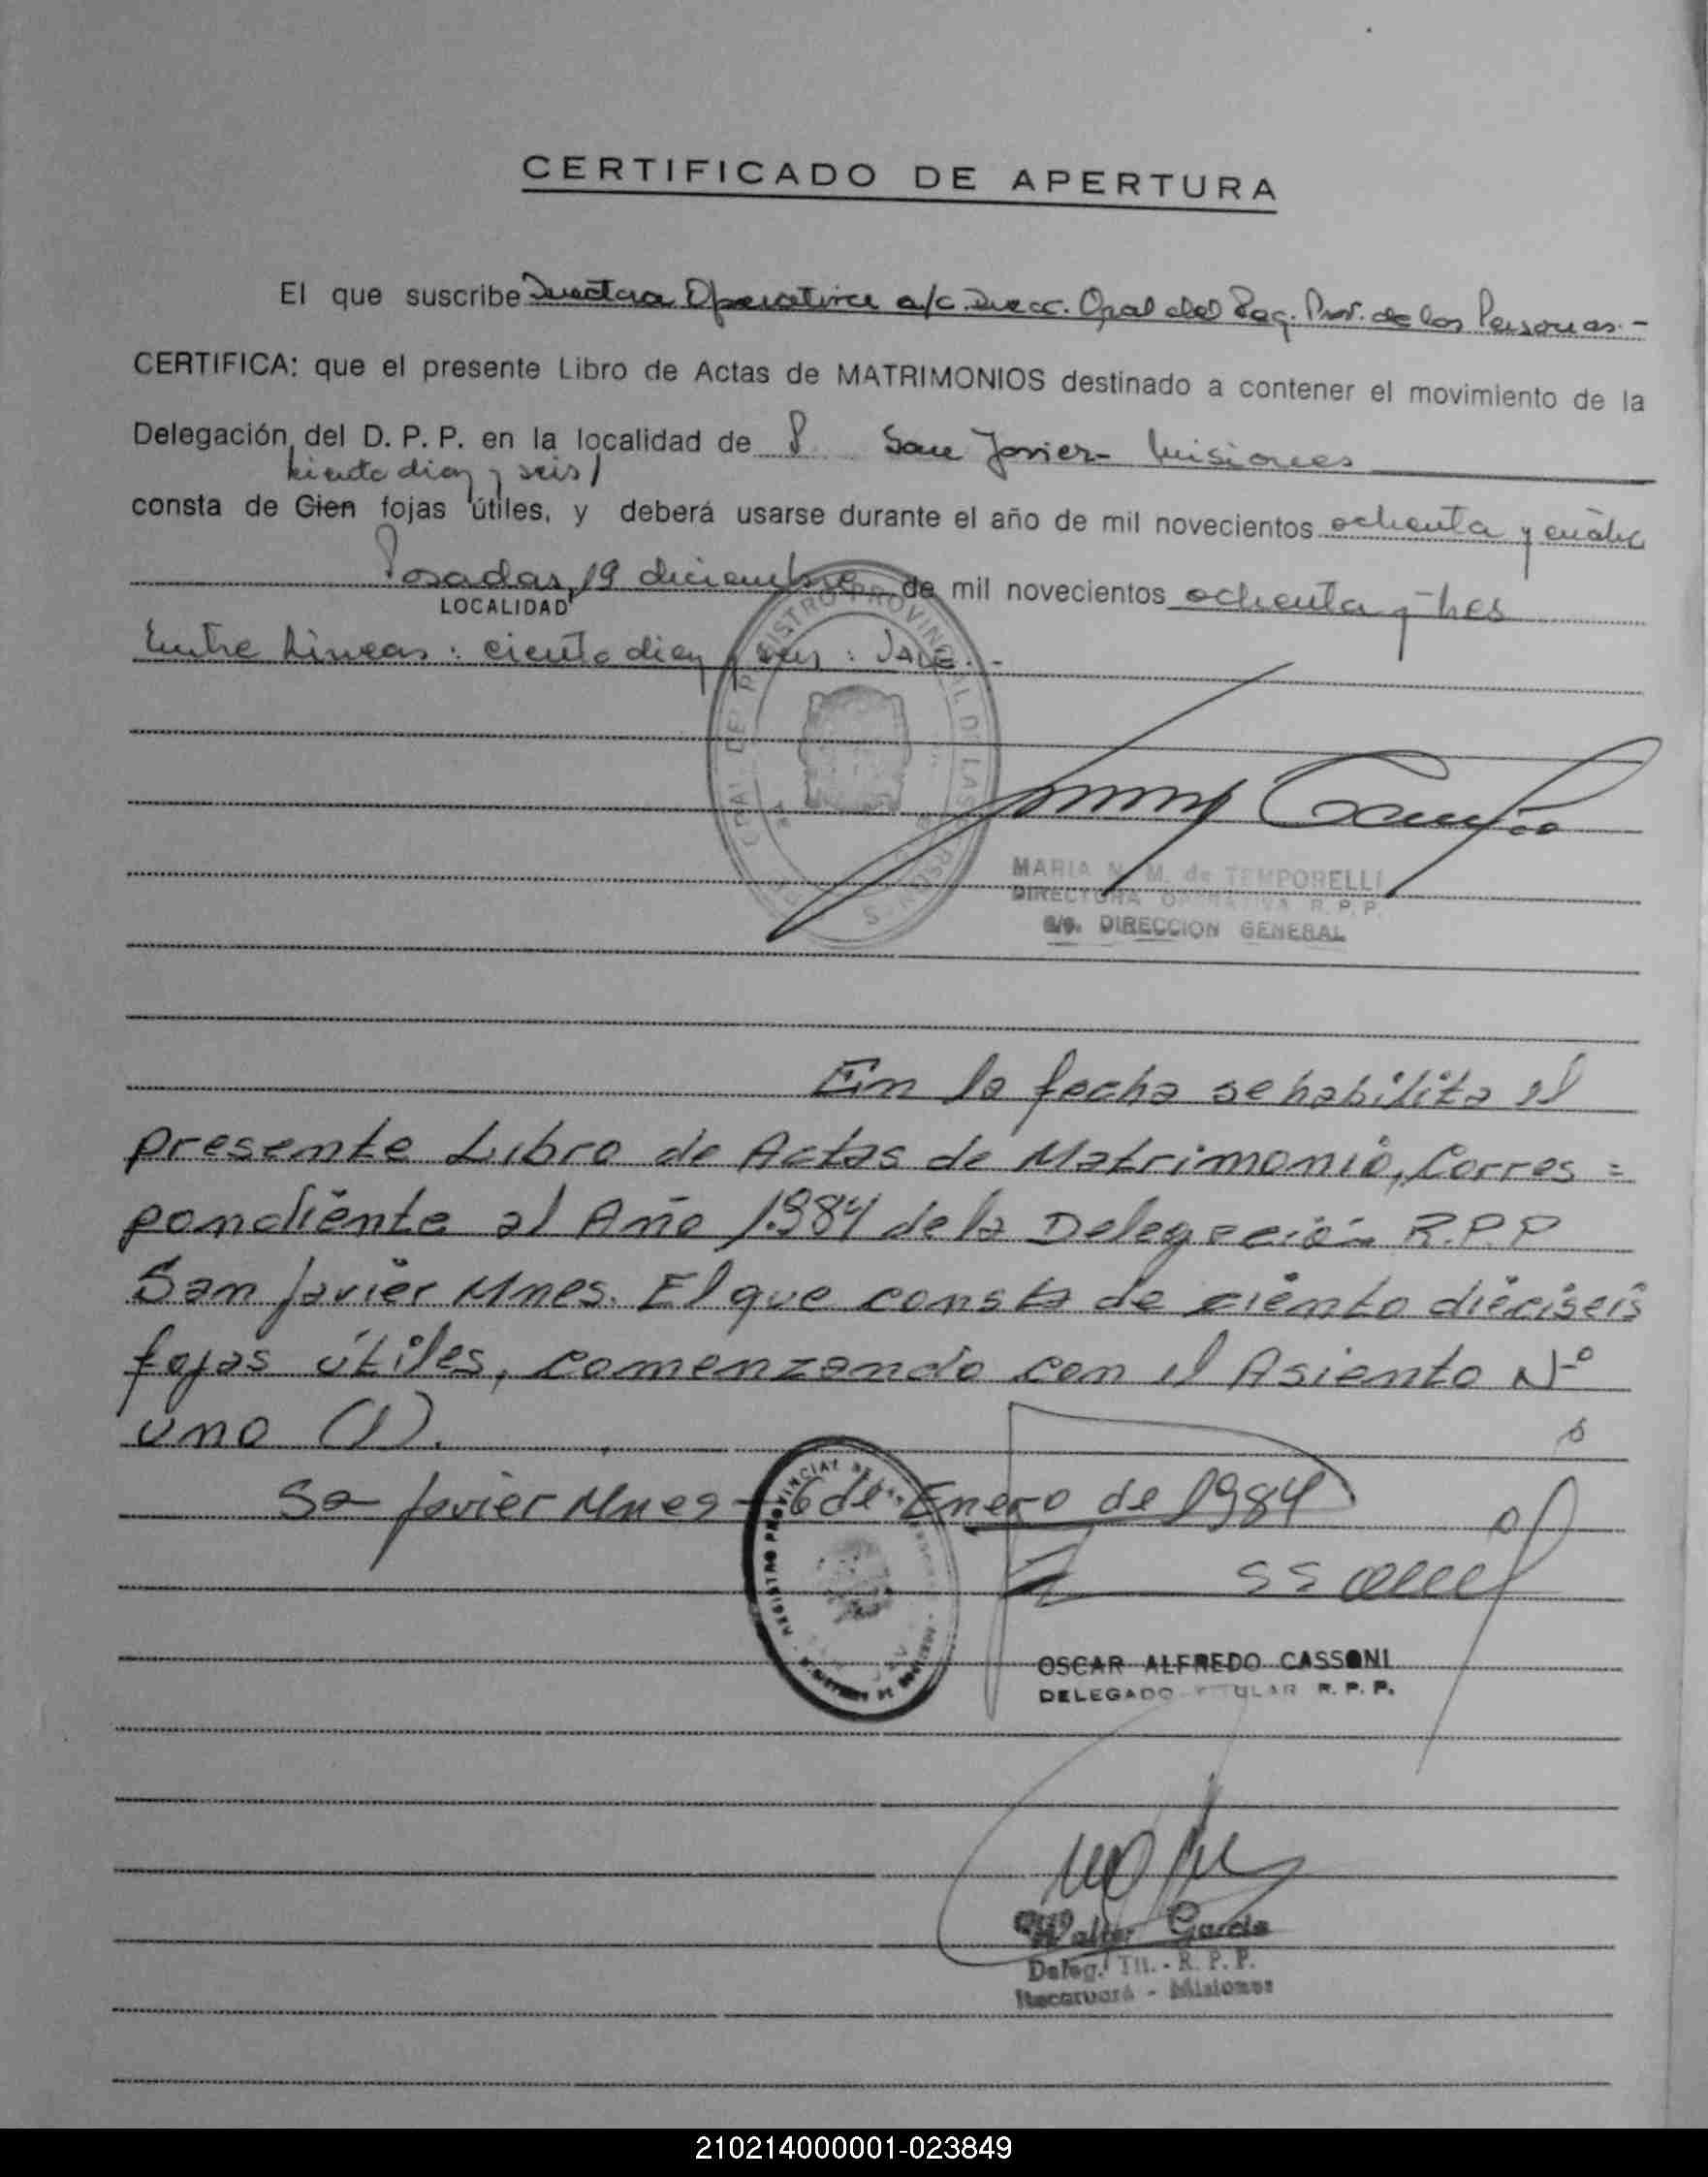 CERTIFICADO DE APERTURA
El que suscribe Directora Operativa a/c. Direcc. Gral del Reg. Prov. de las Personas.-
CERTIFICA: que el presente Libro de Actas de MATRIMONIOS destinado a contener el movimiento de la
Delegación del D. P. P. en la localidad de San Javier- Misiones
ciento diez y seis/
consta de Cien fojas útiles, y deberá usarse durante el año de mil novecientos ochenta y cuatro
Posadas, 19 diciembre de mil novecientos ochenta y tres
LOCALIDAD
Entre Líneas: ciento diez y seis: VALE.-
MARIA N. M. de TEMPORELLI
DIRECTORA OPERATIVA R. P. P.
a/c. DIRECCION GENERAL
En la fecha se habilita el
presente Libro de Actas de Matrimonio, Corres=
pondiente al Año 1.984 de la Delegación R.P.P
San Javier Mnes. El que consta de ciento dieciseis
fojas útiles, comenzando con el Asiento Nº
uno (1).
San Javier Mnes - 6 de Enero de 1984
REGISTRO PROVINCIAL DE LAS PERSONAS
OSCAR ALFREDO CASSONI
DELEGADO TITULAR R. P. P.
Walter García
Deleg. Tit. - R. P. P.
Itacaruaré - Misiones
210214000001-023849